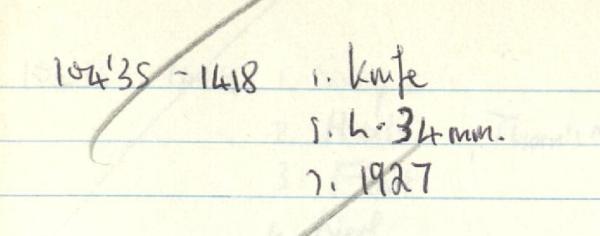 104'35 - 1418 1. Knife
5. h. 34mm.
7. 1927